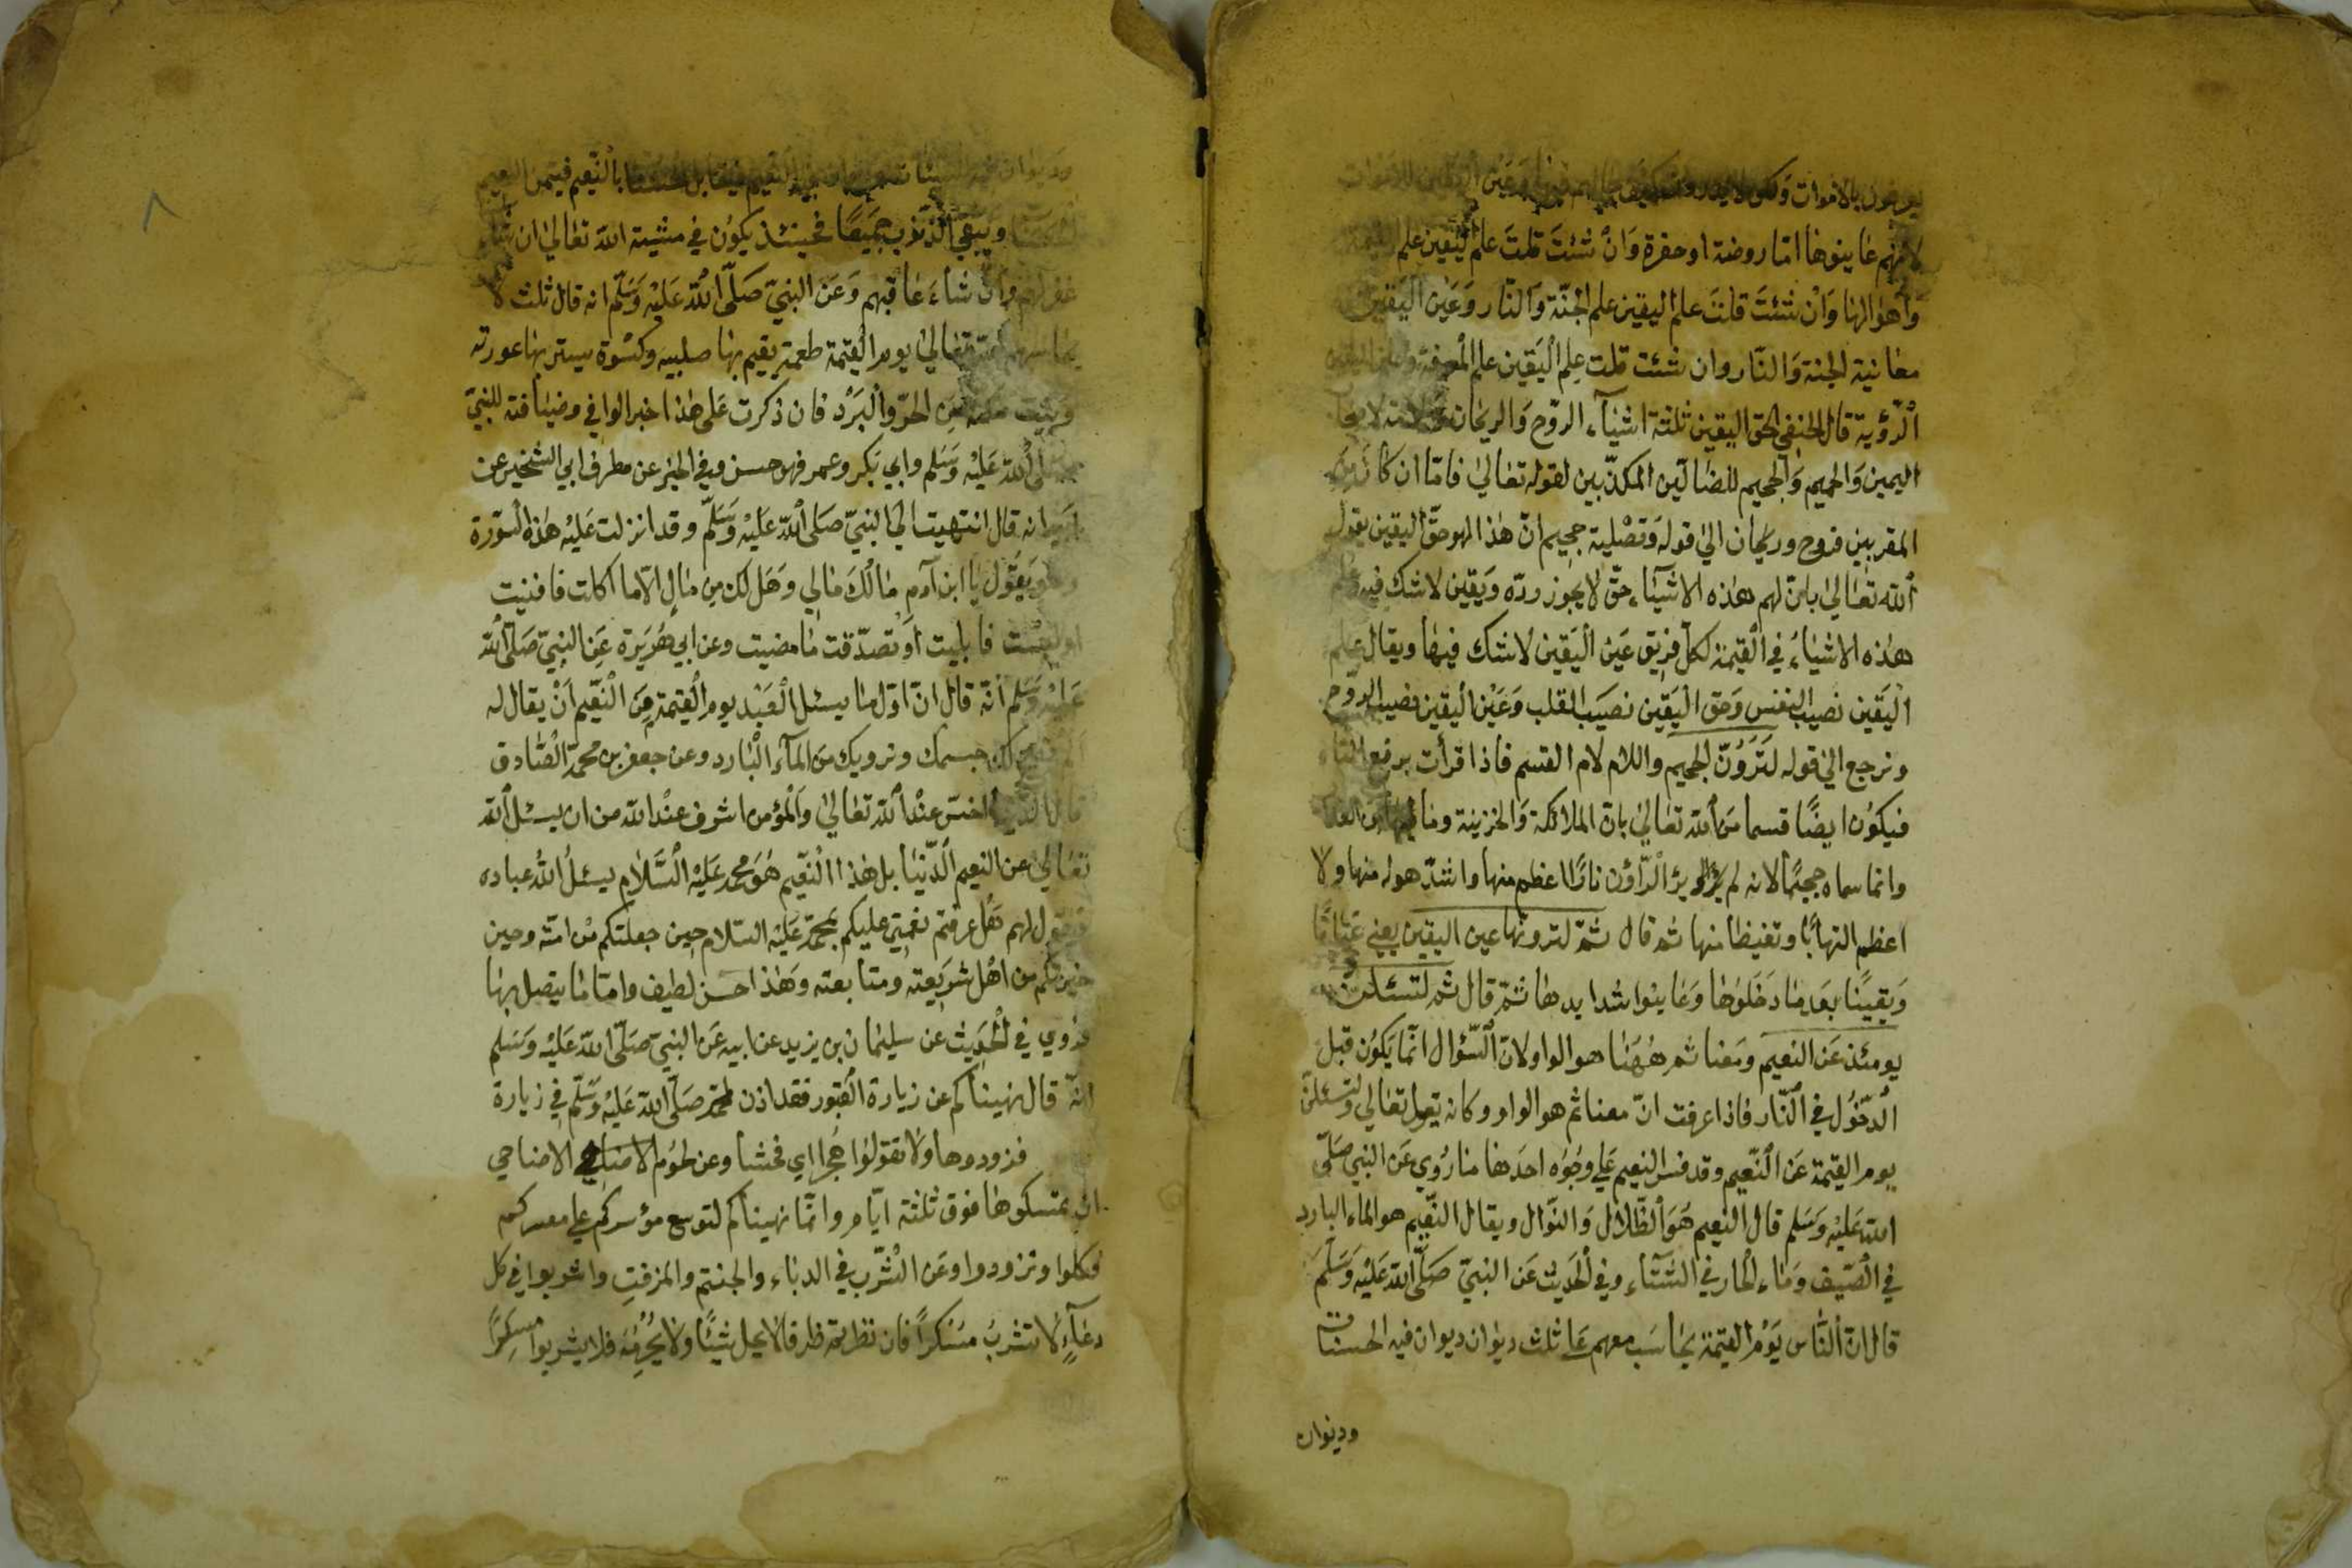 يعرفون بالاموات ولكن لا يدرون كيف حالهم فيها وعين اليقين للاموات
لانهم عاينوها اما روضة او حفرة وان شئت قلت علم اليقين علم القيمة
واهوالها وان شئت قلت علم اليقين علم الجنّة والنّار وعين اليقين
معاينة الجنة والنّار وان شئت قلت عِلم اليَقين علم المعرفة
الرّؤية قال الحنفي الحق اليقين ثلثة اشيآء الروّح والريحان
اليمين وَالحميم وَالجحيم للضالّين المكذّبين لقوله تعالىٰ فامّا ان كان من
المقربين فروح وريحان الىٰ قوله وَتصْلية جحيم انّ هذا لهو حقّ اليقين يقول
الله تعَالىٰ بانّ لهم هذه الاشيآء حقّ لا يجوز ردّه ويَقين لا شكّ فيه
هذه الاشيَاءُ في القيمة لكلّ فريق عَين اليَقين لا شك فيها ويقال علم
اليَقين نصيب النفس وَحق اليَقين نصيَب القلب وَعَيْن اليقين نصيب الروح
ونرجع الىٰ قوله لَتَرَوُنّ الجحيم واللام لام القسم فاذا قرأت برفع التاء
فيكوُن ايضًا قسما منَ الله تعالىٰ بان الملائكة وَالخزينة
وانما سماه جحيمًا لانه لم ير الرّاؤن نارًا اعظم منها واشدّ هوله منها ولا
اعظم التهابًا وتغيظا منها ثم قال ثمّ لترونها عين اليقين يعني عيانًا
وَيقينًا بعَد ما دخَلوُها وَعَاينوا شدايدها ثمّ قال ثم لتسئلن
يومئذ عَن النعيم ومَعنا ثم هٰهُنا هو الواو لانّ السّؤال انّما يَكوُن قبل
الدخُول في النّار فاذا عرفت انّ معنا ثم هو الواو وكانه يقول تعالي ولتسئلنّ
يوم القيمة عَن النّعيم وقد فسّر النعيم عَلي وجُوه احدَها ما رُوي عَن النبي صَلّى
الله عَليْه وَسَلم قال النعيم هوَ الظّلال وَالنوّال ويقال النّعيم هو الماء البارد
في الصَيف وَماء الحار في الشّتآء وفي الحَديث عَن النبيّ صَلّى الله عَليْه وَسَلّمَ
قال ان النّاس يَوم القيمة يحَاسَب معهم عَلى ثلث ديوان ديوان فيه الحسنات
وديوان
وديوان فيه السيئات وديوان فيه النعيم فيقابل حسناتها بالنّعيم فيتمن النعيم
ويبقي الذنوب جميعًا فحينئذ يكوُن في مشية الله تعَالىٰ ان شاء
غفر لهم وان شاءَ عاقبهم وَعَن النبيّ صَلّى الله عَليْه وَسَلّم انه قال ثلث لا
يحاسبهم الله تعَالىٰ يوم القيمة طعمة يقيم بها صلبيه وكسْوة يستر بها عورته
وبيت من الحرّ والبَرْد فان ذكرت عَلى هٰذا خبر الوافي وضيافته للنبيّ
صلّى الله عَليْه وَسَلم وابي بَكر وعمر فهو حسن وفي الخبر عن مطرف ابي الشخير عن
ابيه انه قال انتهيت الى النبيّ صَلى الله عَليْه وَسَلّم وقد انزلت عَليْه هذه السوّرة
وهو يَقوُل يا ابن آدم مٰالُكَ مٰالي وهَل لك مِن مٰالٍ الّا ما اكلت فافنيت
او لبست فابليت أو تصدّقت مٰا مضيت وعن ابي هُرَيرة عَن النبيّ صَلّى الله
عَليْه وَسَلم انّه قال انّ اوّل مٰا يسئل العَبْد يوم القيمة مِنَ النّعيم اَنْ يقال له
جسمك ونرويك من المآء البارد وعن جعفر بن محمّد الصّادق
قال الدّنيا اخسّ عنْد الله تعَالىٰ وَالمؤمن اشرف عنْد الله من ان يسئل الله
تعَالىٰ عن النعيم الدّنيا بل هٰذا النّعيم هُوَ محمّد عَليْه السَّلام يسئلُ اللهُ عباده
فيقول لهم هَل عرفتم نعمتي عليكم بمحمّد عَليْه السّلام حين جعلتكم منْ امّته وحين
من اهْل شريعته ومتابعته وَهٰذا احسن لطيف وامّا مٰا يتصل بها
فروي في الحَديث عن سليمٰان بن يزيد عن ابيه عَن النبيّ صَلّى الله عَليْه وَسَلم
انّه قال نهيناكم عن زيارة القبور فقد اذن لمحمّد صَلّى الله عَليْه وَسَلّم في زيارة
فزوروها ولا تقولوُا هُجرا اي فحشا وعن لحوُم الاضاحي الاضاحي
ان تمسكوها فوق ثلثة ايّام وانّما نهيناكم لتوسع مؤسركم علي معسركم
فكلوا وتزودوا وعَن الشّرب في الدباء والحنتم والمزفتِ واشربوا في كل
دعَآءٍ لا تشربُ مسْكراً فان ظرفا لا يحل شيئًا ولا يُحَرّمهُ فلا يشربوا مسكِرًا